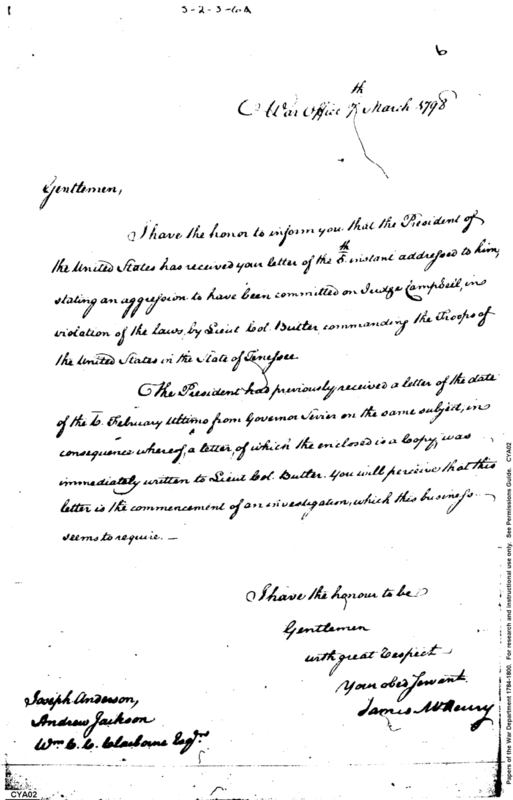 3-2-3-60A
6
War Office 7th March 1798
Gentlemen,
I have the honor to inform you that the President of
the United States has received your letter of the 5th instant addressed to him,
stating an aggression to have been committed on Judge Campbell, in
violation of the laws, by Lieut Col. Butler commanding the Troops of
the United States in the State of Tenessee.
The President had previously received a letter of the date
of the 6. February Ultimo from Governor Sevier on the same subject, in
consequence whereof, a letter, of which the enclosed is a Copy, was
immediately written to Lieut Col. Butler. You will perceive that this
letter is the commencement of an investigation, which this business
seems to require. —
I have the honour to be
Gentlemen
with great Respect
Your obed Servant
James McHenry
Joseph Anderson,
Andrew Jackson
Wm C. C. Claiborne Esqrs
CYA02
Papers of the War Department 1784-1800. For research and instructional use only. See Permissions Guide. CYA02